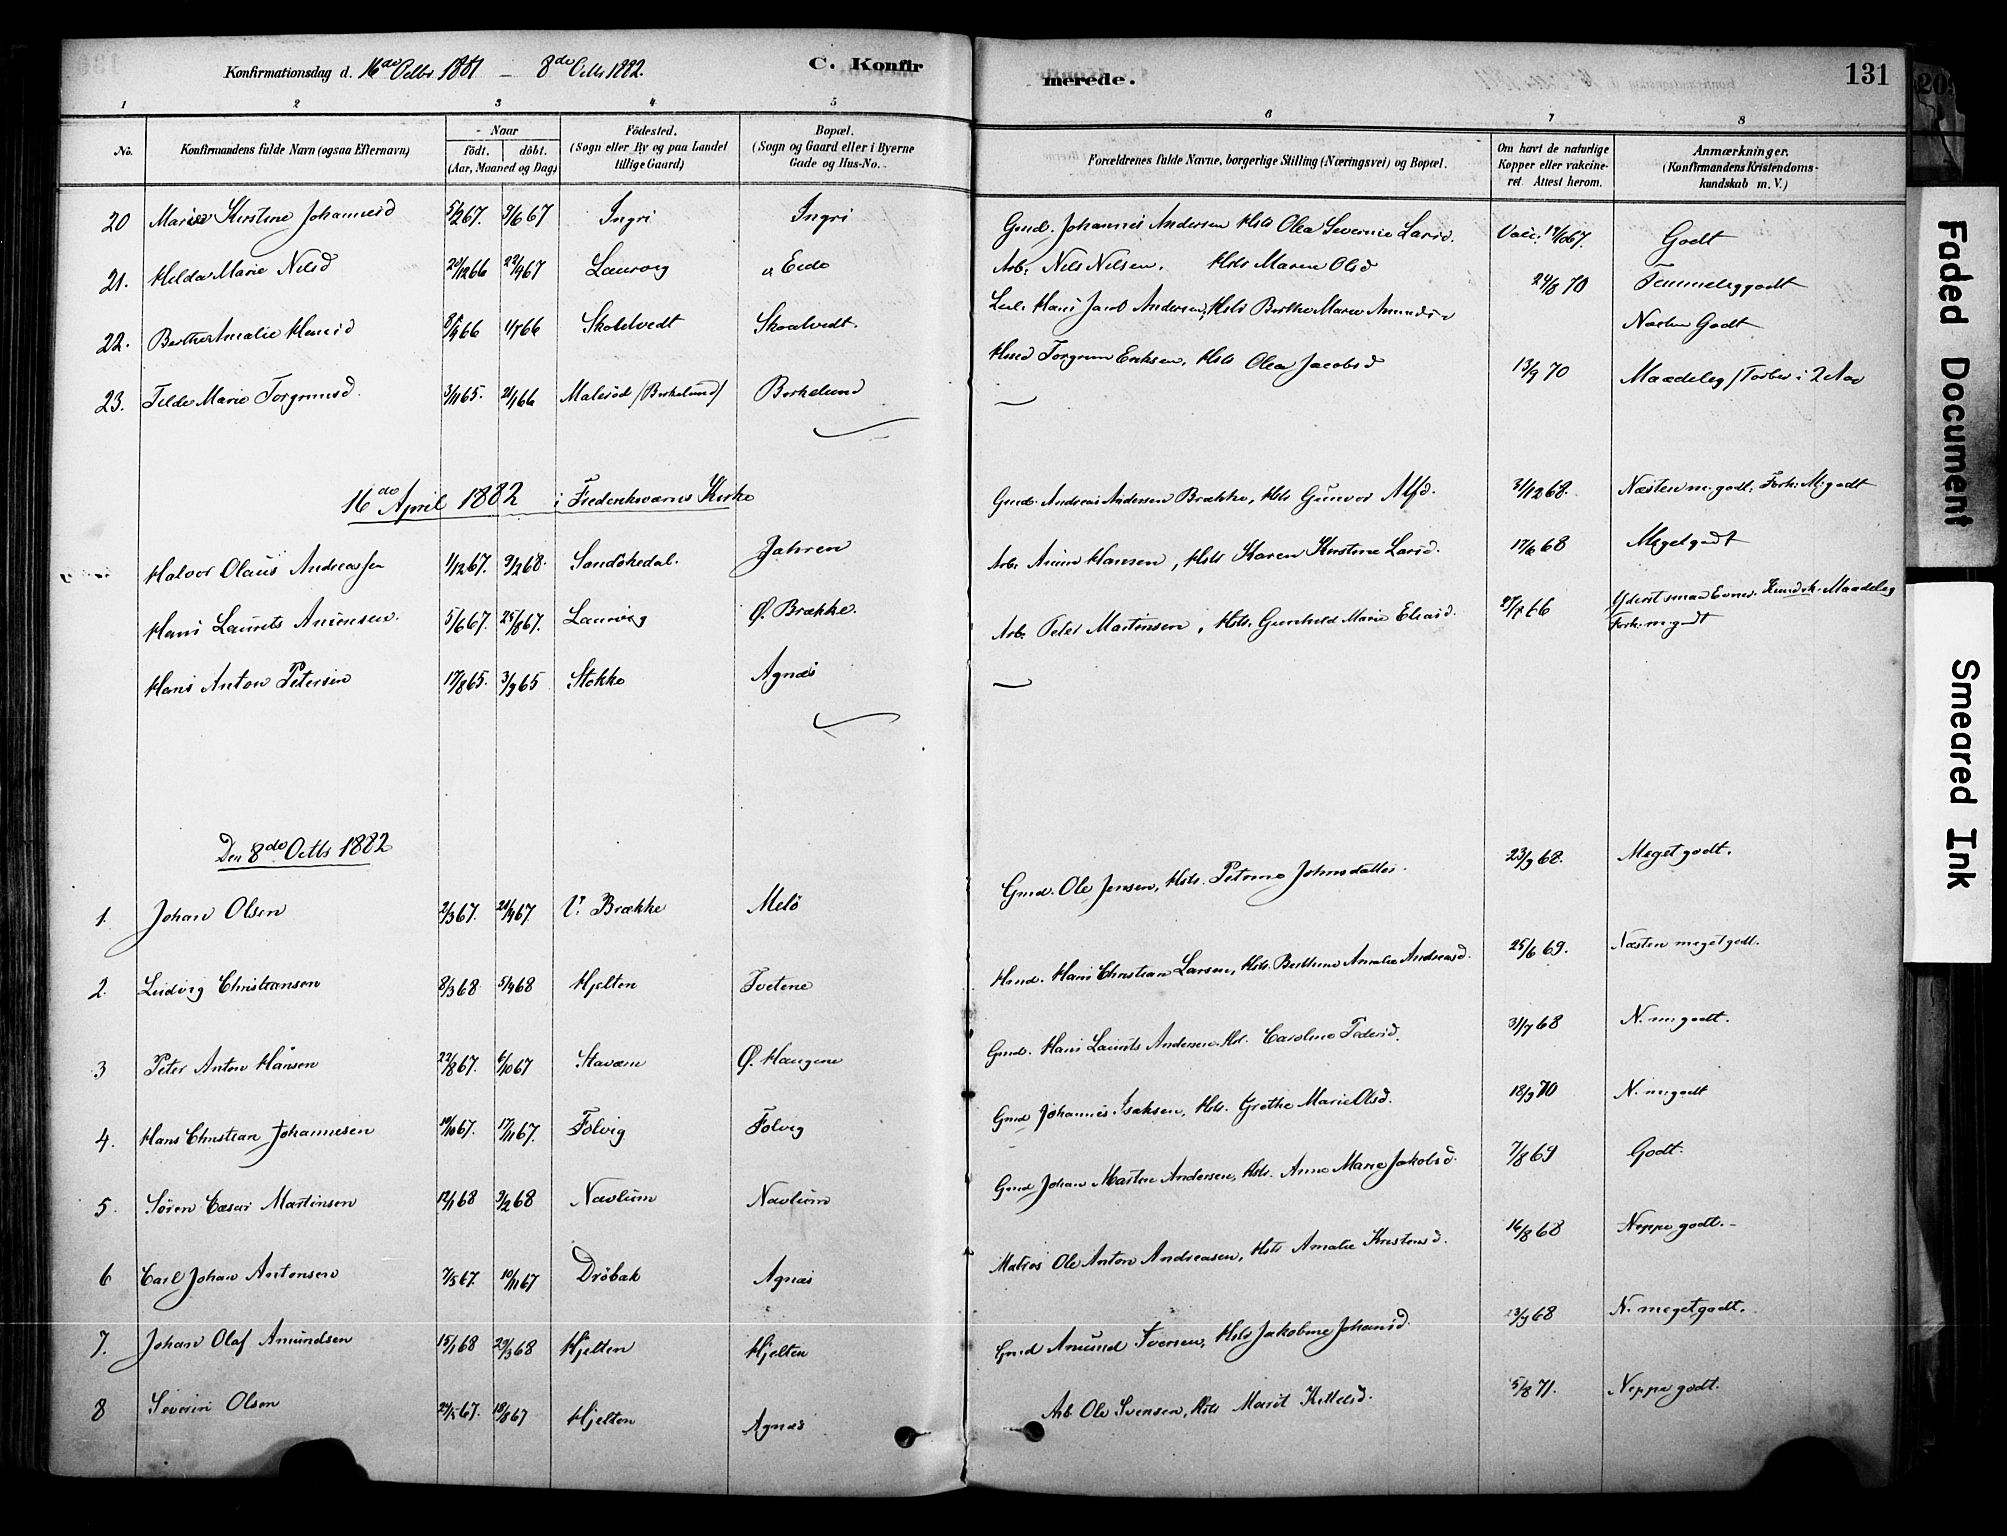 Konfirmationsdag d. 16de Octbr 1881 – 8de Octb 1882.
C. Konfirmerede.
131
1 2 3 4 5 6 7 8
No.
Konfirmandens fulde Navn (ogsaa Efternavn)
Naar
födt. döbt.
(Aar, Maaned og Dag)
Födested.
(Sogn eller By og paa Landet tillige Gaard)
Bopæl.
(Sogn og Gaard eller i Byerne Gade og Hus-No.)
Forældrenes fulde Navne, borgerlige Stilling (Næringsvei) og Bopæl.
Om havt de naturlige Kopper eller vakcineret. Attest herom.
Anmærkninger.
(Konfirmandens Kristendomskundskab m. V.)
20 Maries Kirstine Johannesd 5/2 67. 9/6 67 Ingri Ingri Gmd. Johannes Andersen Hstr Olea Severine Larsd. Vacc. 17/10 67. Godt
21. Helda Marie Nilsd 20/12 66 22/9 67 Laurvig Eide Arb. Nils Nilsen. Hstr Maren Olsd 24/8 70 Temmelig godt
22. Berthe Amalie Hansd 66 66 Skolelvedt Skoalvedt. Hans Jacob Andersen, Hstr Berthe Marie Næsten Godt
23. Tilda Marie Torgrimsd. 3/11 65. 21/1 66 Malerød (Birkelund) Birkelund Hmd Torgrim Eriksen, Hstr Olea Jacobsd 13/9 70 Maadelig
16de April 1882 i Fredriksværns Kirke
Halvor Olaus Andreassen 1/12 67. 9/2 68. Sandökedal. Jahren Gmd. Andreas Andersen Brække, Hstr Gunvor Alfd. 31/12 68. Næsten m. godt. Forh. M. godt
Hans Laurits Anionsen. 5/6 67. 25/8 67. Laurvig Ø. Brække. Arb. Hansen, Hstr Karen Kirstine Larsd. 17/6 68 Meget godt
Hans Anton Petersen 17/8 65. 3/9 65 Stokke Agnæs Arb. Peter Martinsen, Hstr. Gunhild Marie Eliasd. 66 Yderst smaa Evner. Kundsk. Maadelig
Forh. m. godt
Den 8de Octb 1882
1. Johan Olsen 2/3 67. 21/4 67. V. Brække Melö Gmd. Ole Jensen, Hstr. Petrine Johnsdatter. 23/9 68. Meget godt.
2. Ludvig Christiansen 8/3 68 5/4 68 Hjelten Tvetene Hmd. Hans Christian Larsen, Hstr. Berthine Amalie Andreasd. 25/6 69. Næsten meget godt.
3 Peter Anton Hansen 22/8 67. 6/10 67 Staværn Ø. Haugene Gmd. Hans Laurits Andersen. Hstr. Caroline Pedersd. 31/7 68 N. m. godt.
4. Hans Christian Johannesen 10/10 67. 17/11 67. Folvig Folvig Gmd Johannes Isaksen, Hstr. Grethe Marie Olsd. 18/9 70 N. m. godt
5. Sören Cæsar Martinsen 12/1 68 9/2 68 Navlum Navlum Gmd Johan Martin Andersen, Hstr. Anne Marie Jakobsd. 7/8 69 Godt.
6 Carl Johan Antonsen 7/5 67. 10/11 67 Dröbak Agnæs Matros Ole Anton Andreasen, Hstr Amalie Kristensd. 16/8 68 Neppe godt.
7. Johan Olaf Amundsen 15/1 68 22/3 68 Hjelten Hjelten Gmd Amund Iversen, Hstr Jakobine Johansd. 23/9 68 N. meget godt.
8 Severin Olsen 67. 18/8 67 Hjelten Agnæs Arb Ole Svensen, Hstr Marit Kittelsd. 5/8 71. Neppe godt.
Faded Document
Smeared Ink